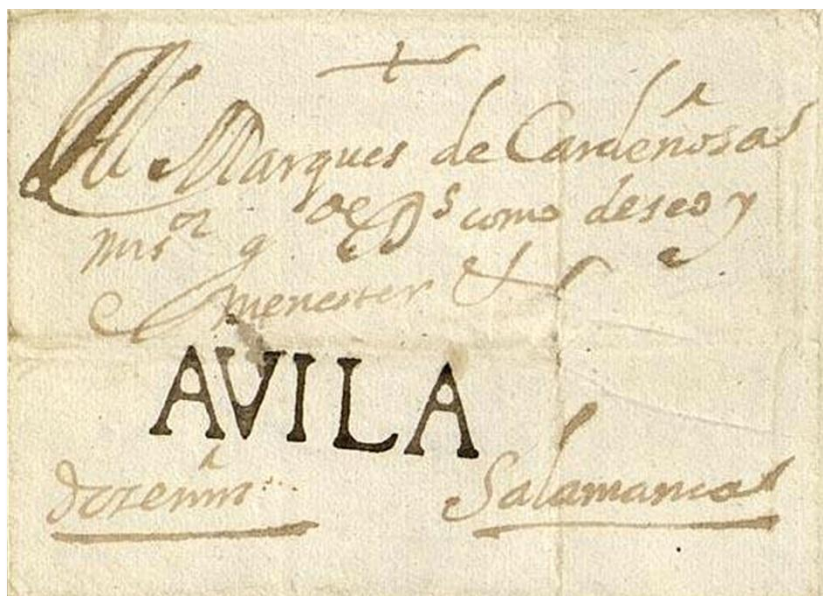 Al Marques de Cardeñosa
mi s.or g de Ds como deseo y
menester &
AVILA
Salamanca